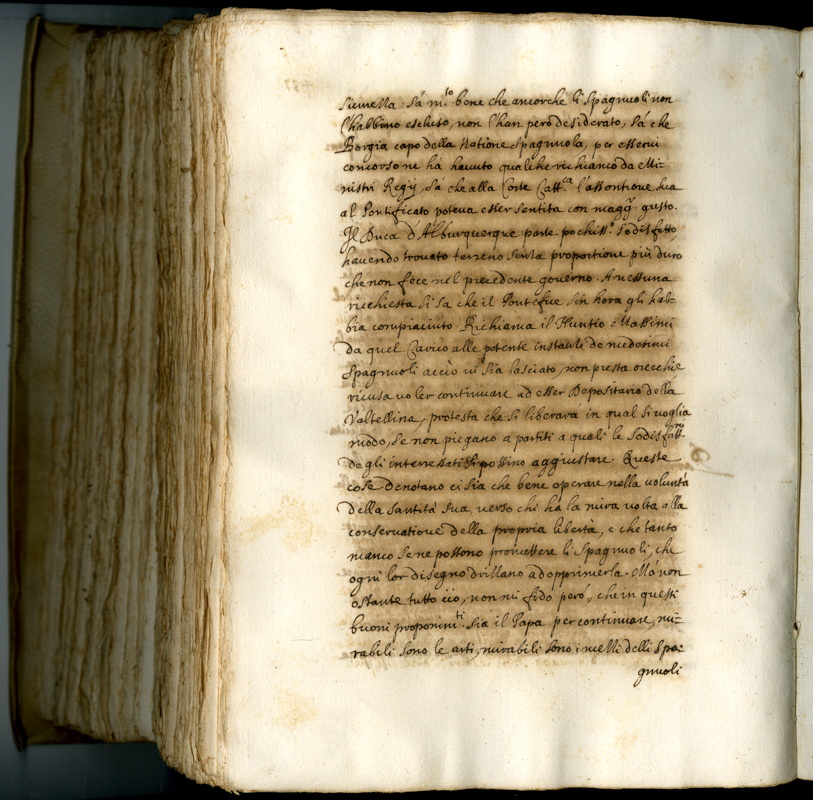 Siemetta. Sà m.to bene che ancorche li Spagnuoli non
l'habbino escluso, non l'han però desiderato, Sà che
Borgia capo della Natione Spagnuola, per esservi
concorso ne hà havuto qualche richiamo da Mi-
nistri Regij, Sà che alla Corte Catt.ca l'assontione sua
al Pontificato poteva esser sentita con magg.r gusto.
Il Duca d'Alburquerque parte pochiss.o sodisfatto,
havendo trovato terreno senza proportione più duro
che non fece nel precedente governo. A nessuna
richiesta si sa che il Pontefice sin hora gli hab-
bia compiaciuto. Richiama il Nuntio Massimi
da quel Carico alle potenti instanze de medesimi
Spagnuoli acciò vi sia lasciato, non presta orecchie
ricusa voler continuare ad esser Depositario della
Valtellina, protesta che si liberarà in qual si voglia
modo, se non piegano a partiti a quali le sodisfatt.ni
de gli interressati si possino aggiustare. Queste
cose denotano ci sia che bene operare nella voluntà
della santità sua, verso chi hà la mira volta alla
conservatione della propria libertà, e che tanto
manco se ne possono promettere li Spagnuoli, che
ogni lor disegno drizzano ad opprimerla. Mà non
ostante tutto ciò, non mi fido però, che in questi
buoni proponim.ti sia il Papa per continuare, mi-
rabili sono le arti, mirabili sono i mezzi delli Spa-
gnuoli